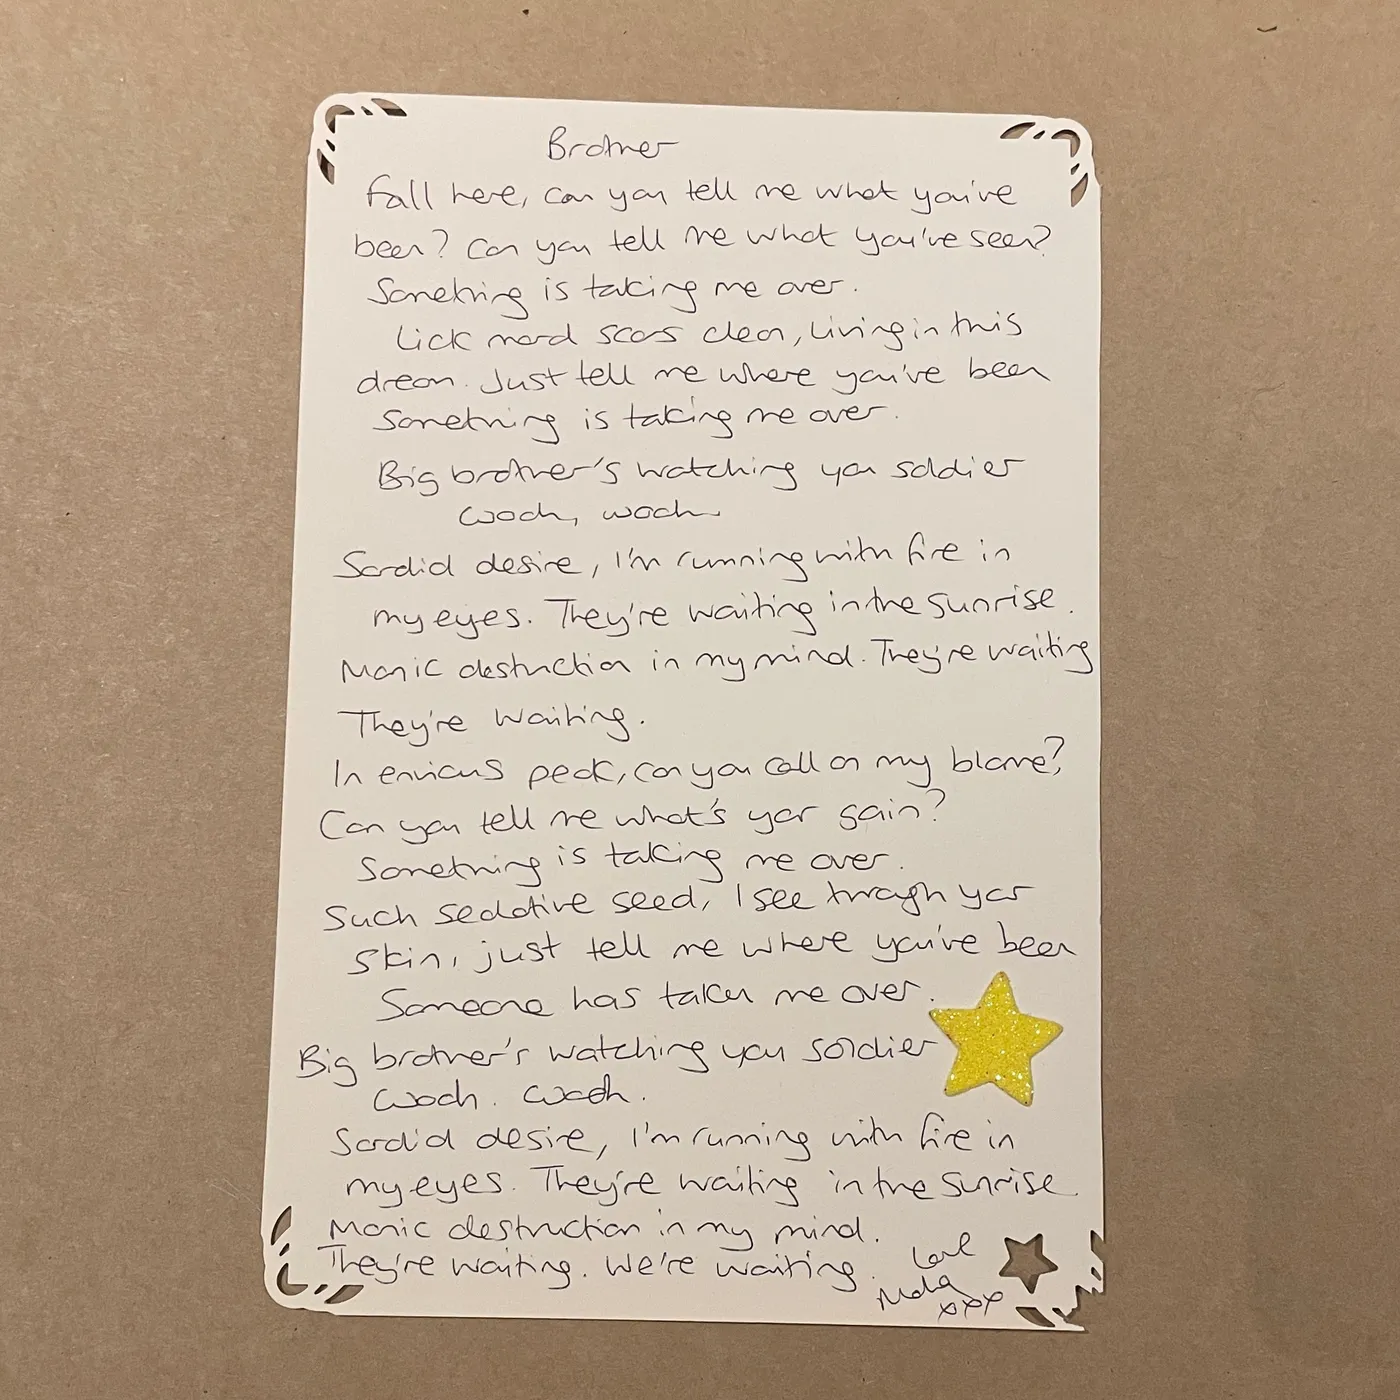 Brother
Fall here, can you tell me what you've
been? Can you tell me what you've seen?
Something is taking me over.
Lick mord scars clean, living in this
dream. Just tell me where you've been
Something is taking me over.
Big brother's watching you soldier
woah, woah
Sordid desire, I'm running with fire in
my eyes. They're waiting in the sunrise.
Manic destruction in my mind. They're waiting
They're waiting.
In envious peak, can you call on my blame?
Can you tell me what's your gain?
Something is taking me over.
Such sedative seed, I see through your
skin, just tell me where you've been
Someone has taken me over.
Big brother's watching you soldier
woah. woah.
Sordid desire, I'm running with fire in
my eyes. They're waiting in the sunrise.
Manic destruction in my mind.
They're waiting. We're waiting.
Love
xxx